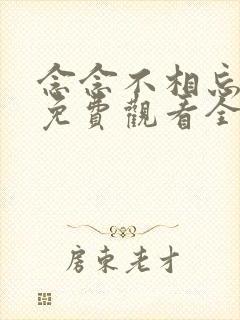 念念不相忘
免費觀看全
房東老才